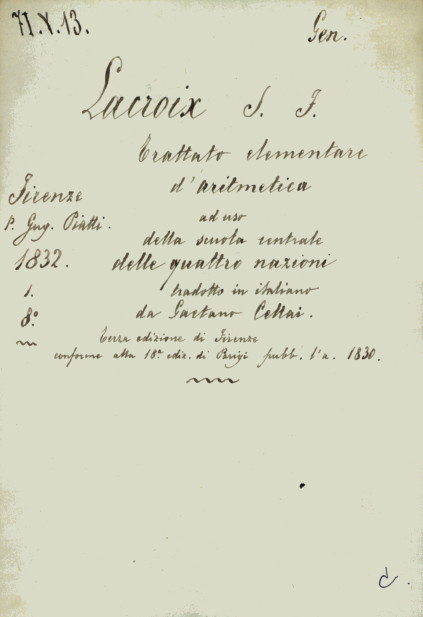 71.V.13.
Gen.
Lacroix S. F.
Trattato elementare
d'aritmetica
ad uso
della scuola centrale
delle quattro nazioni
tradotto in italiano
da Gaetano Cellai.
Terza edizione di Firenze
conforme alla 18ª ediz. di Parigi pubb. l'a. 1830.
Firenze
p. Gug. Piatti.
1832.
1.
8º